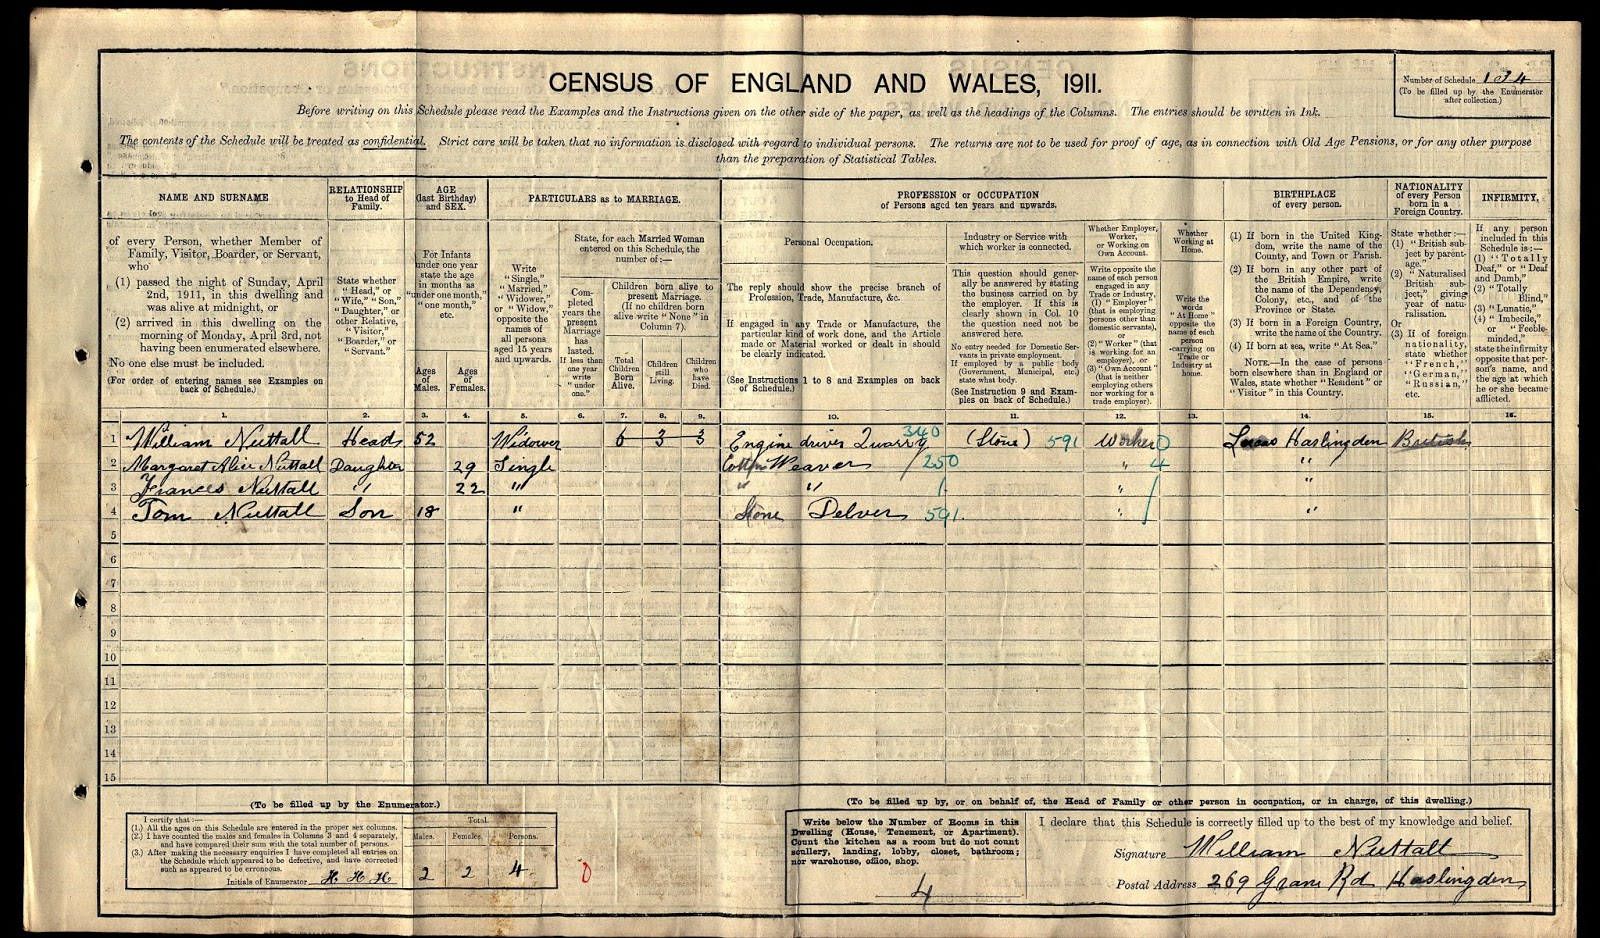 CENSUS OF ENGLAND AND WALES, 1911.
Number of Schedule 134
(To be filled up by the Enumerator
after collection.)
Before writing on this Schedule please read the Examples and the Instructions given on the other side of the paper, as well as the headings of the Columns. The entries should be written in Ink.
The contents of the Schedule will be treated as confidential. Strict care will be taken that no information is disclosed with regard to individual persons. The returns are not to be used for proof of age, as in connection with Old Age Pensions, or for any other purpose
than the preparation of Statistical Tables.
NAME AND SURNAME
of every Person, whether Member of
Family, Visitor, Boarder, or Servant,
who
(1) passed the night of Sunday, April
2nd, 1911, in this dwelling and
was alive at midnight, or
(2) arrived in this dwelling on the
morning of Monday, April 3rd, not
having been enumerated elsewhere.
No one else must be included.
(For order of entering names see Examples on
back of Schedule.)
RELATIONSHIP
to Head of
Family.
State whether
"Head," or
"Wife," "Son,"
"Daughter," or
other Relative,
"Visitor,"
"Boarder," or
"Servant."
AGE
(last Birthday)
and SEX.
For Infants
under one year
state the age
in months as
"under one month,"
"one month,"
etc.
Ages
of
Males.
Ages
of
Females.
PARTICULARS as to MARRIAGE.
Write
"Single,"
"Married,"
"Widower,"
or "Widow,"
opposite the
names of
all persons
aged 15 years
and upwards.
State, for each Married Woman
entered on this Schedule, the
number of:—
Com-
pleted
years the
present
Marriage
has
lasted.
If less than
one year
write
"under
one."
Children born alive to
present Marriage.
(If no children born
alive write "None" in
Column 7).
Total
Children
Born
Alive.
Children
still
Living.
Children
who
have
Died.
PROFESSION or OCCUPATION
of Persons aged ten years and upwards.
Personal Occupation.
The reply should show the precise branch of
Profession, Trade, Manufacture, &c.
If engaged in any Trade or Manufacture, the
particular kind of work done, and the Article
made or Material worked or dealt in should
be clearly indicated.
(See Instructions 1 to 8 and Examples on back
of Schedule.)
Industry or Service with
which worker is connected.
This question should gener-
ally be answered by stating
the business carried on by
the employer. If this is
clearly shown in Col. 10
the question need not be
answered here.
No entry needed for Domestic Ser-
vants in private employment.
If employed by a public body
(Government, Municipal, etc.)
state what body.
(See Instruction 9 and Exam-
ples on back of Schedule.)
Whether Employer,
Worker,
or Working on
Own Account.
Write opposite the
name of each person
engaged in any
Trade or Industry,
(1) "Employer"
(that is employing
persons other than
domestic servants),
or
(2) "Worker" (that
is working for an
employer), or
(3) "Own Account"
(that is neither
employing others
nor working for a
trade employer).
Whether
Working at
Home.
Write the
words
"At Home"
opposite the
name of each
person
carrying on
Trade or
Industry at
home.
BIRTHPLACE
of every person.
(1) If born in the United King-
dom, write the name of the
County, and Town or Parish.
(2) If born in any other part of
the British Empire, write
the name of the Dependency,
Colony, etc., and of the
Province or State.
(3) If born in a Foreign Country,
write the name of the Country.
(4) If born at sea, write "At Sea."
NOTE.—In the case of persons
born elsewhere than in England or
Wales, state whether "Resident" or
"Visitor" in this Country.
NATIONALITY
of every Person
born in a
Foreign Country.
State whether:—
(1) "British sub-
ject by parent-
age."
(2) "Naturalised
British sub-
ject," giving
year of natu-
ralisation.
Or
(3) If of foreign
nationality,
state whether
"French,"
"German,"
"Russian,"
etc.
INFIRMITY.
If any person
included in this
Schedule is:—
(1) "Totally
Deaf," or "Deaf
and Dumb,"
(2) "Totally
Blind,"
(3) "Lunatic,"
(4) "Imbecile,"
or "Feeble-
minded,"
state the infirmity
opposite that per-
son's name, and
the age at which
he or she became
afflicted.
1. 2. 3. 4. 5. 6. 7. 8. 9. 10. 11. 12. 13. 14. 15. 16.
1 William Nuttall Head 52 Widower 6 3 3 Engine driver Quarry 340 (Stone) 591 Worker 0 Haslingden British
2 Margaret Alice Nuttall Daughter 29 Single Cotton Weaver 250 " 4 "
3 Frances Nuttall " 22 " " " " "
4 Tom Nuttall Son 18 " Stone Delver 591. " "
5
6
7
8
9
10
11
12
13
14
15
(To be filled up by the Enumerator.)
I certify that:—
(1.) All the ages on this Schedule are entered in the proper sex columns.
(2.) I have counted the males and females in Columns 3 and 4 separately,
and have compared their sum with the total number of persons.
(3.) After making the necessary enquiries I have completed all entries on
the Schedule which appeared to be defective, and have corrected
such as appeared to be erroneous.
Initials of Enumerator H. H. H.
Total.
Males. Females. Persons.
2 2 4
0
(To be filled up by, or on behalf of, the Head of Family or other person in occupation, or in charge, of this dwelling.)
Write below the Number of Rooms in this
Dwelling (House, Tenement, or Apartment).
Count the kitchen as a room but do not count
scullery, landing, lobby, closet, bathroom;
nor warehouse, office, shop.
4
I declare that this Schedule is correctly filled up to the best of my knowledge and belief.
Signature William Nuttall
Postal Address 269 Grane Rd Haslingden